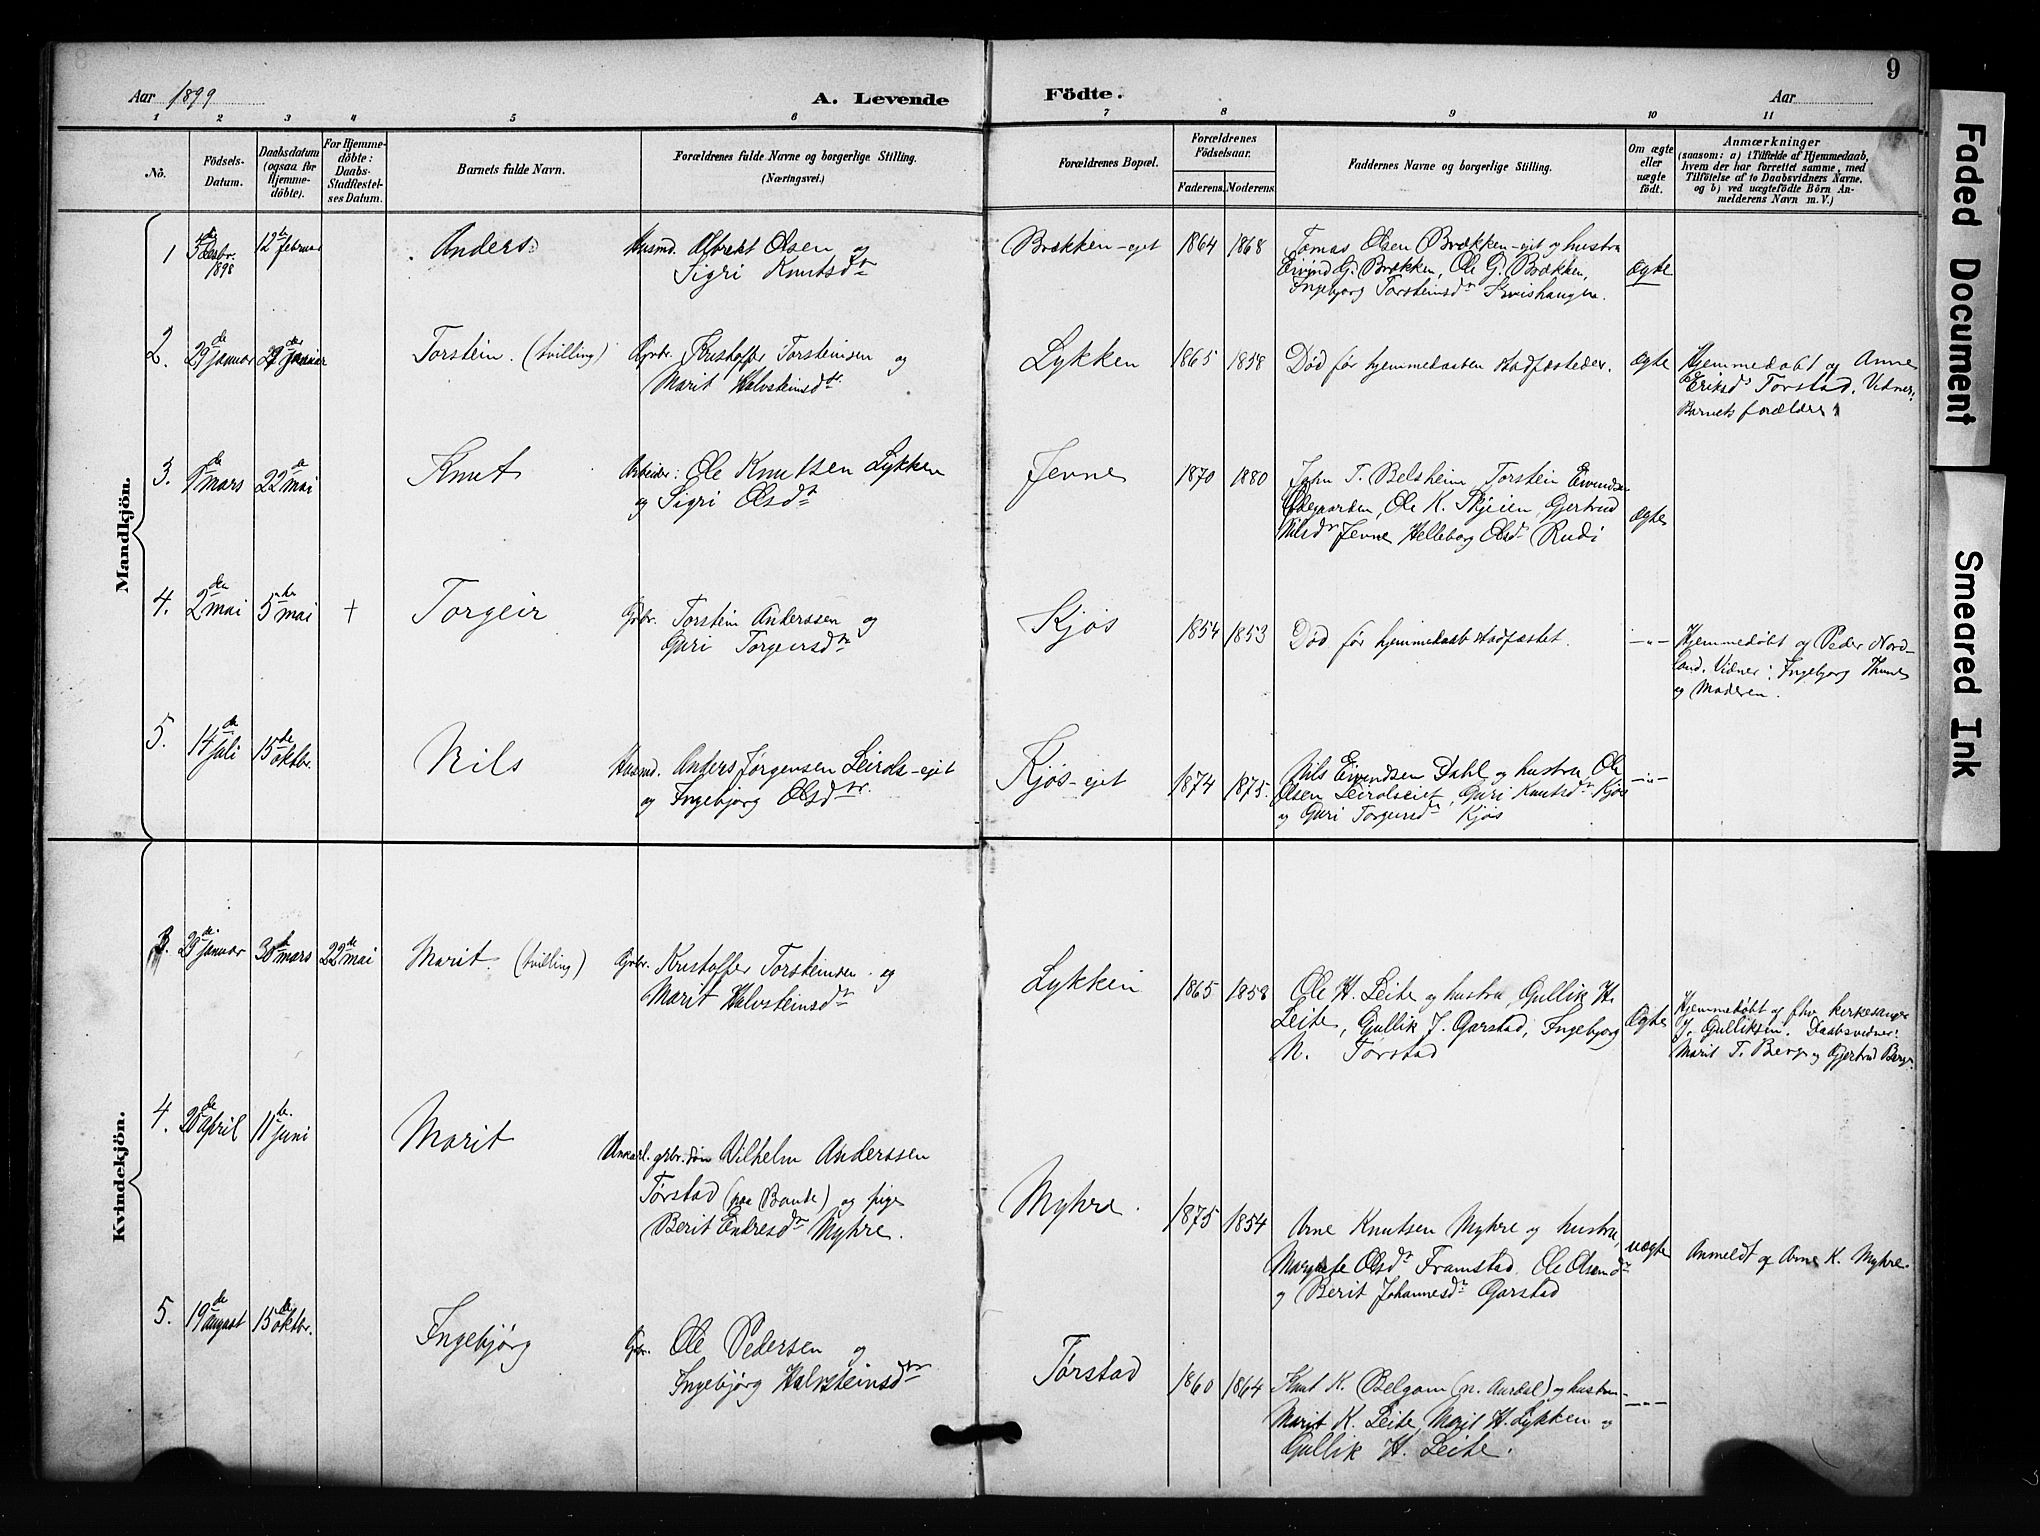 9
Aar 1899
A. Levende
Födte.
Aar
1 2 3 4 5 6 7 8 9 10 11
No.
Födsels-Datum.
Daabsdatum (ogsaa for Hjemmedöbte).
For Hjemmedöbte: Daabs-Stadfæstelses Datum.
Barnets fulde Navn.
Forældrenes fulde Navne og borgerlige Stilling. (Næringsvei.)
Forældrenes Bopæl.
Forældrenes Födselsaar.
Faderens. Moderens.
Faddernes Navne og borgerlige Stilling.
Om ægte eller uægte födt.
Anmærkninger
(saasom: a) i Tilfælde af Hjemmedaab, hvem der har forrettet samme, med Tilföielse af to Daabsvidners Navne, og b) ved uægtefödte Börn Anmelderens Navn m. V.)
Mandkjön.
1
3die desbr. 1898
12te februar
Anders.
Husmd. Albrekt Olsen og
Sigri Knutsdtr
Brækken-ejet
1864 1868
Tomas Olsen Brækken-ejet og hustru
Eivind G. Brækken, Ole G. Brækken,
Ingebjorg Torsteinsdtr
ægte
2.
29de januar
29de januar
Torstein. (tvilling)
Grbr. Kristoffer Torsteinsen og
Marit Halvsteinsdtr
Lykken
1865 1858
Død før hjemmedaaben stadfæstedes.
ægte
Hjemmedøbt af Anne
Eriksdr Torstad. Vidner:
Barnets forældre.
3.
1de mars
22de mai
Knut
Arbeider: Ole Knutsen Lykken
og Sigri Olsdtr
Jevne
1870 1880
John T. Belsheim, Torstein Eivindsen
Ødegaarden, Ole K. Skjeien, Gjertrud
Nilsdtr Jevne Helleborg Olsdr Rudi
ægte
4.
2den mai
5te mai
+
Torgeir
Grbr. Torstein Anderssen og
Guri Torgeirsdtr
Kjøs
1854 1853
Død før hjemmedaab stadfæstet.
-"-
Hjemmedøbt af Peder Nord-
land. Vidner: Ingebjorg Thune
og Moderen.
5.
14de juli
15de oktbr.
Nils
Husmd. Anders Jørgensen Leirols-ejet
og Ingebjørg Olsdtr.
Kjøs-ejet
1874 1875.
Nils Eivindsen Dahl og hustru, Ole
Olsen Leirolseiet, Guri Knutsdtr Kjøs
og Guri Torgeirsdtr Kjøs
-"-
Kvindekjön.
3.
29de januar
30te mars
22de mai
Marit. (tvilling)
Grbr. Kristoffer Torsteinsen og
Marit Halvsteinsdtr
Lykken
1865 1858
Ole H. Leite og hustru, Gullik H.
Leite, Gullik J. Garstad, Ingebjorg
N. Tørstad
Ægte
Hjemmedøbt af fhv. kirkesanger
J. Gulliksen. Daabsvidner:
Marit T. Berg og Gjertrud Berg.
4.
20de april
11te juni
Marit
Unkarl. grbr.søn Vilhelm Anderssen
Tørstad (paa Bande) og pige
Berit Endresdtr Myhre.
Myhre.
1875 1854
Arne Knutsen Myhre og hustru,
Margrete Olsdtr Framstad, Ole Olsen
og Berit Johannesdtr Garstad
uægte
Anmeldt af Arne K. Myhre.
5.
19de august
15de oktbr.
Ingebjørg
Grbr. Ole Pedersen og
Ingebjørg Halvsteinsdtr
Tørstad
1860 1864
Knut K. Belgom (n. Aurdal) og hustru
Marit K. Leite, Marit H. Lykken og
Gullik H. Leite.
-"-
Faded Document
Smeared Ink